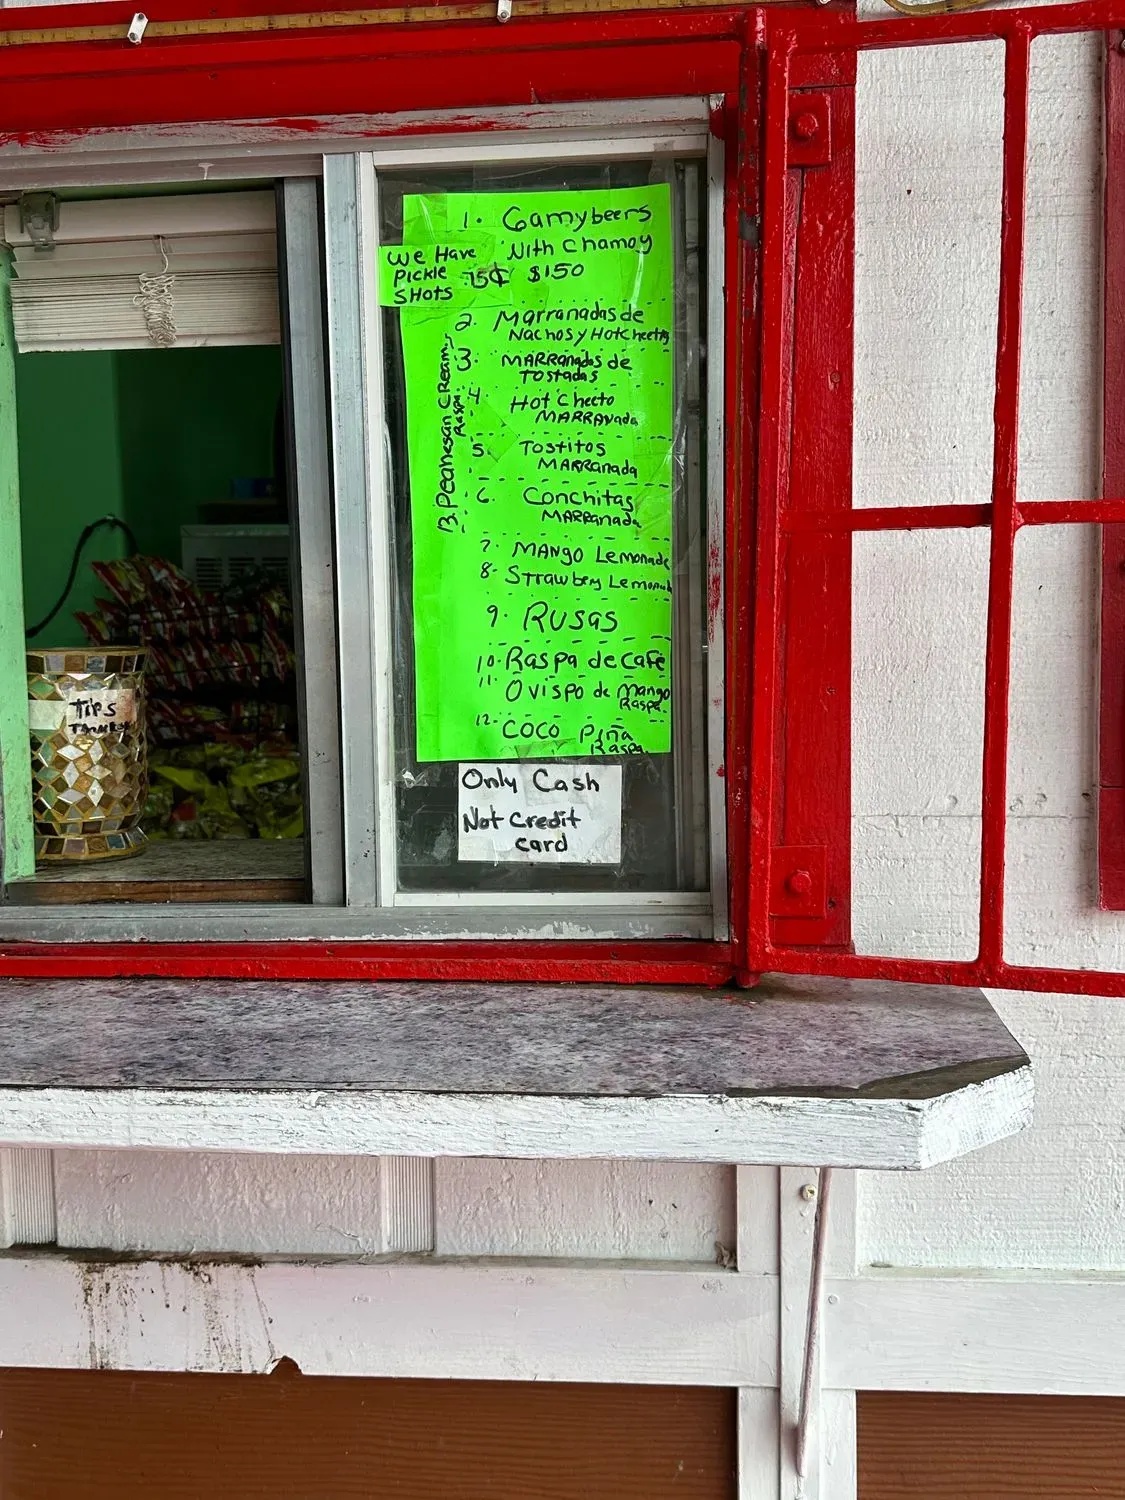 1. Gamybeers
With Chamoy
$1.50
We Have
Pickle 75¢
SHots
2. Marranadas de
Nachos y HotCheetos
3. MARRanadas de
Tostadas
4. Hot Cheeto
MARRanada
5. Tostitos
MARRanada
6. Conchitas
MARRanada
7. MANgo Lemonade
8- Strawbery Lemonade
9. RUSAS
10. Raspa de Café
11. Ovispo de Mango
Raspa.
12. COCO Piña
Raspa.
13. Peanesan CReam.
Raspa.
Only Cash
Not Credit
Card
Tips